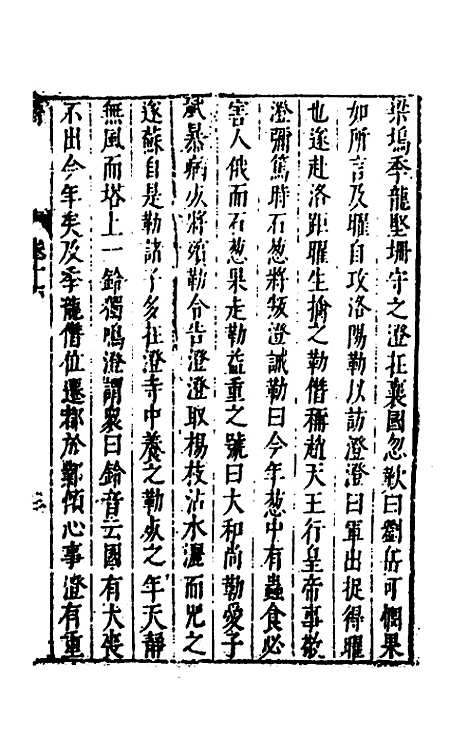 梁塢季龍堅柵守之澄在襄國忽歎曰劉岳可憫果
如所言及曜自攻洛陽勒以訪澄澄曰軍出捉得曜
也遂赴洛距曜生擒之勒僭稱趙天王行皇帝事敬
澄彌篤時石葱將叛澄誡勒曰今年葱中有蟲食必
害人俄而石葱果走勒益重之號曰大和尚勒愛子
斌暴病死將殯勒令告澄澄取楊枝沾水灑而咒之
遂蘇自是勒諸子多在澄寺中養之勒死之年天靜
無風而塔上一鈴獨鳴澄謂眾曰鈴音云國有大喪
不出今年矣及季龍僭位遷都於鄴傾心事澄有重